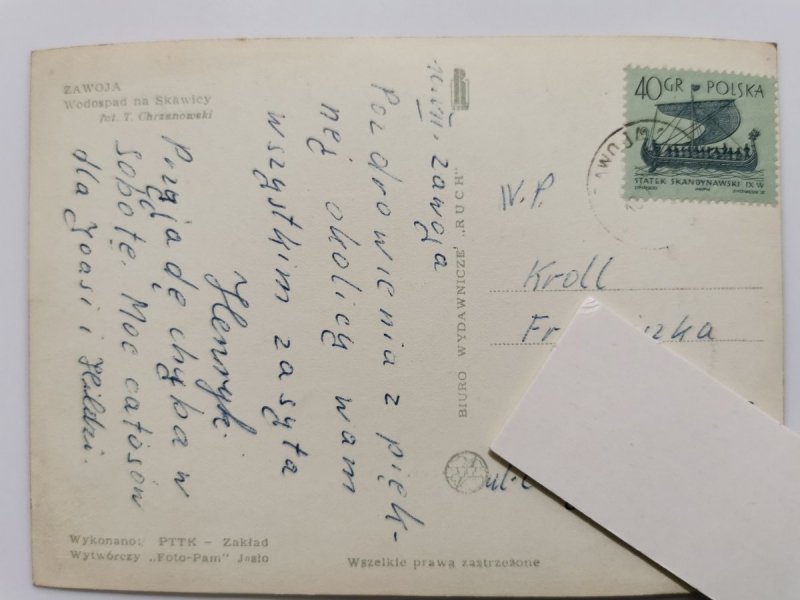 ZAWOJA
Wodospad na Skawicy
fot. T. Chrzanowski
Zawoja
Pozdrowienia z pięk-
nej okolicy wam
wszystkim zasyła
Henryk.
Przyjadę chyba w
sobotę. Moc całusów
dla Joasi i Hildzi.
BIURO WYDAWNICZE „RUCH”
40 GR POLSKA
STATEK SKANDYNAWSKI IX W
W.P.
Kroll
ul.
Wykonano: PTTK - Zakład
Wytwórczy „Foto-Pam” Jasło
Wszelkie prawa zastrzeżone